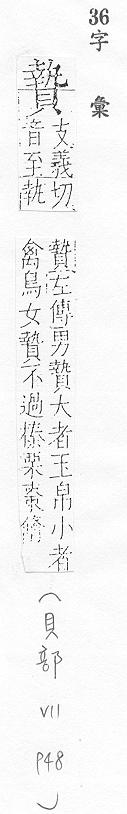 36
字彙
贄
支義切
音至執
贄左傳男贄大者玉帛小者
禽鳥女贄不過榛栗棗脩
（貝部 VII P48）